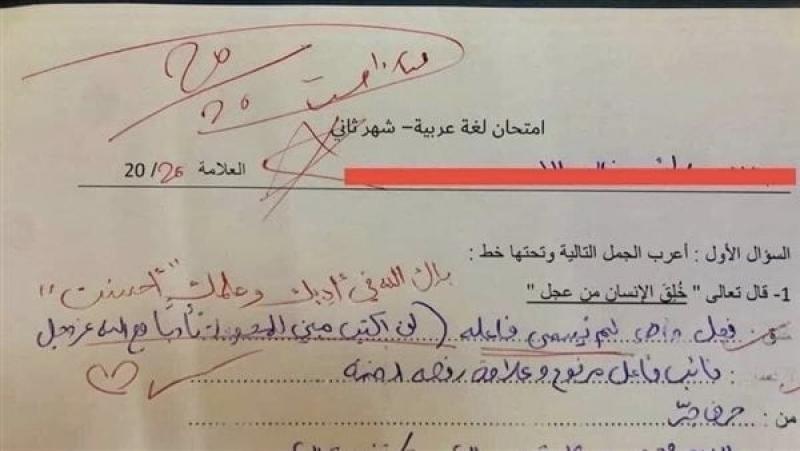 20
20
ممتاز احسنت
امتحان لغة عربية – شهر ثاني
العلامة 20/20
السؤال الأول : أعرب الجمل التالية وتحتها خط :
بارك الله في أدبك وعلمك "أحسنت"
1- قال تعالى " خُلِقَ الإنسان من عجل "
خلق : فعل ماض لم يسمى فاعله ( لن اكتب مبني للمجهول تأدبا مع الله عز وجل
: نائب فاعل مرفوع وعلامة رفعه الضمة
من : حرف جرّ